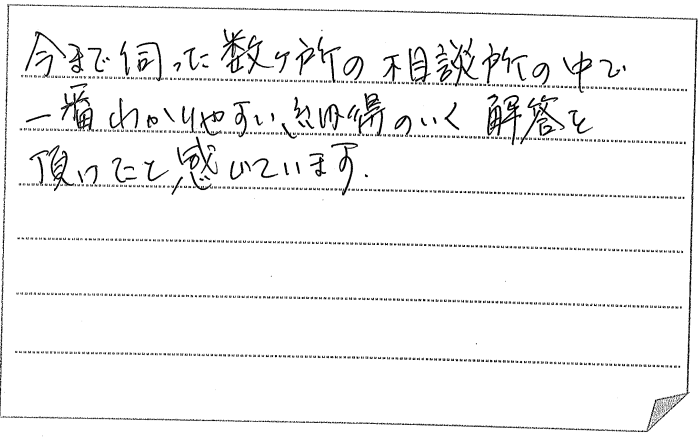 今まで伺った数ヶ所の相談所の中で
一番わかりやすい納得のいく解答を
頂けたと感じています.